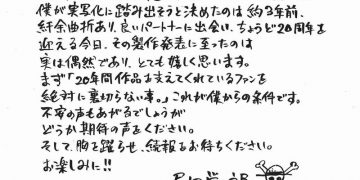 僕が実写化に踏み出そうと決めたのは約3年前、
紆余曲折あり、良いパートナーに出会い、ちょうど20周年を
迎える今日、その製作発表に至ったのは
実は偶然であり、とても嬉しく思います。
まず「20年間作品を支えてくれているファンを
絶対に裏切らない事。」これが僕からの条件です。
不安の声もあがるでしょうが
どうか期待の声をください。
そして、胸を躍らせ、続報をお待ちください。
お楽しみに!!